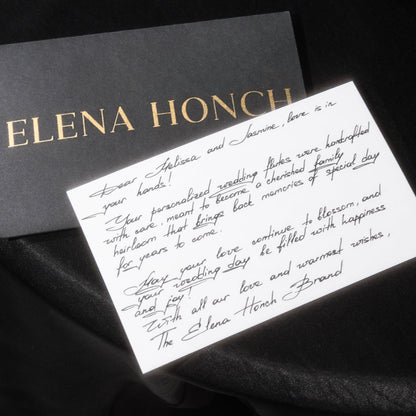 ELENA HONCH
Dear Melissa and Jasmine, love is in
your hands!
Your personalized wedding flutes were handcrafted
with care, meant to become a cherished family
heirloom that brings back memories of special day
for years to come.
May your love continue to blossom, and
your wedding day be filled with happiness
and joy!
With all our love and warmest wishes,
The Elena Honch Brand